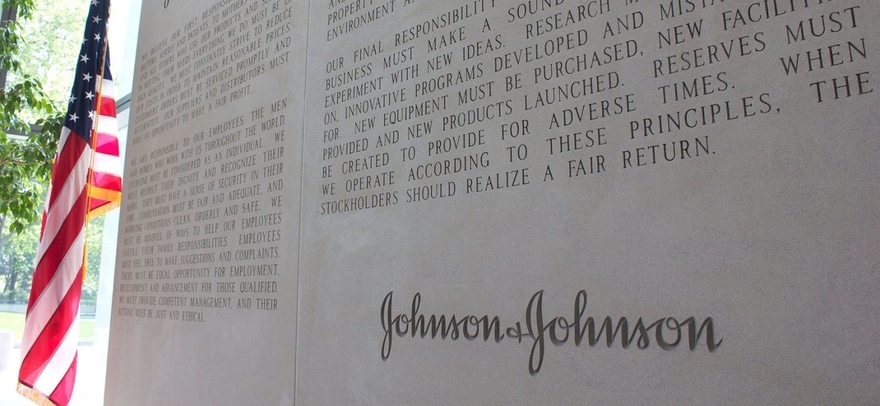 WE BELIEVE OUR FIRST RESPONSIBILITY
MUST MAINTAIN REASONABLE PRICES.
ORDERS MUST BE SERVICED PROMPTLY AND
OUR SUPPLIERS AND DISTRIBUTORS MUST
HAVE AN OPPORTUNITY TO MAKE A FAIR PROFIT.
WE ARE RESPONSIBLE TO OUR EMPLOYEES, THE MEN
AND WOMEN WHO WORK WITH US THROUGHOUT THE WORLD.
EVERYONE MUST BE CONSIDERED AS AN INDIVIDUAL. WE
MUST RESPECT THEIR DIGNITY AND RECOGNIZE THEIR
MERIT. THEY MUST HAVE A SENSE OF SECURITY IN THEIR
JOBS. COMPENSATION MUST BE FAIR AND ADEQUATE, AND
WORKING CONDITIONS CLEAN, ORDERLY AND SAFE. WE
MUST BE MINDFUL OF WAYS TO HELP OUR EMPLOYEES
FULFILL THEIR FAMILY RESPONSIBILITIES. EMPLOYEES
MUST FEEL FREE TO MAKE SUGGESTIONS AND COMPLAINTS.
THERE MUST BE EQUAL OPPORTUNITY FOR EMPLOYMENT,
DEVELOPMENT AND ADVANCEMENT FOR THOSE QUALIFIED.
WE MUST PROVIDE COMPETENT MANAGEMENT, AND THEIR
ACTIONS MUST BE JUST AND ETHICAL.
PROPERTY
ENVIRONMENT
OUR FINAL RESPONSIBILITY
BUSINESS MUST MAKE A SOUND
EXPERIMENT WITH NEW IDEAS. RESEARCH
ON, INNOVATIVE PROGRAMS DEVELOPED AND
FOR. NEW EQUIPMENT MUST BE PURCHASED, NEW FACILITIES
PROVIDED AND NEW PRODUCTS LAUNCHED. RESERVES MUST
BE CREATED TO PROVIDE FOR ADVERSE TIMES. WHEN
WE OPERATE ACCORDING TO THESE PRINCIPLES, THE
STOCKHOLDERS SHOULD REALIZE A FAIR RETURN.
Johnson & Johnson